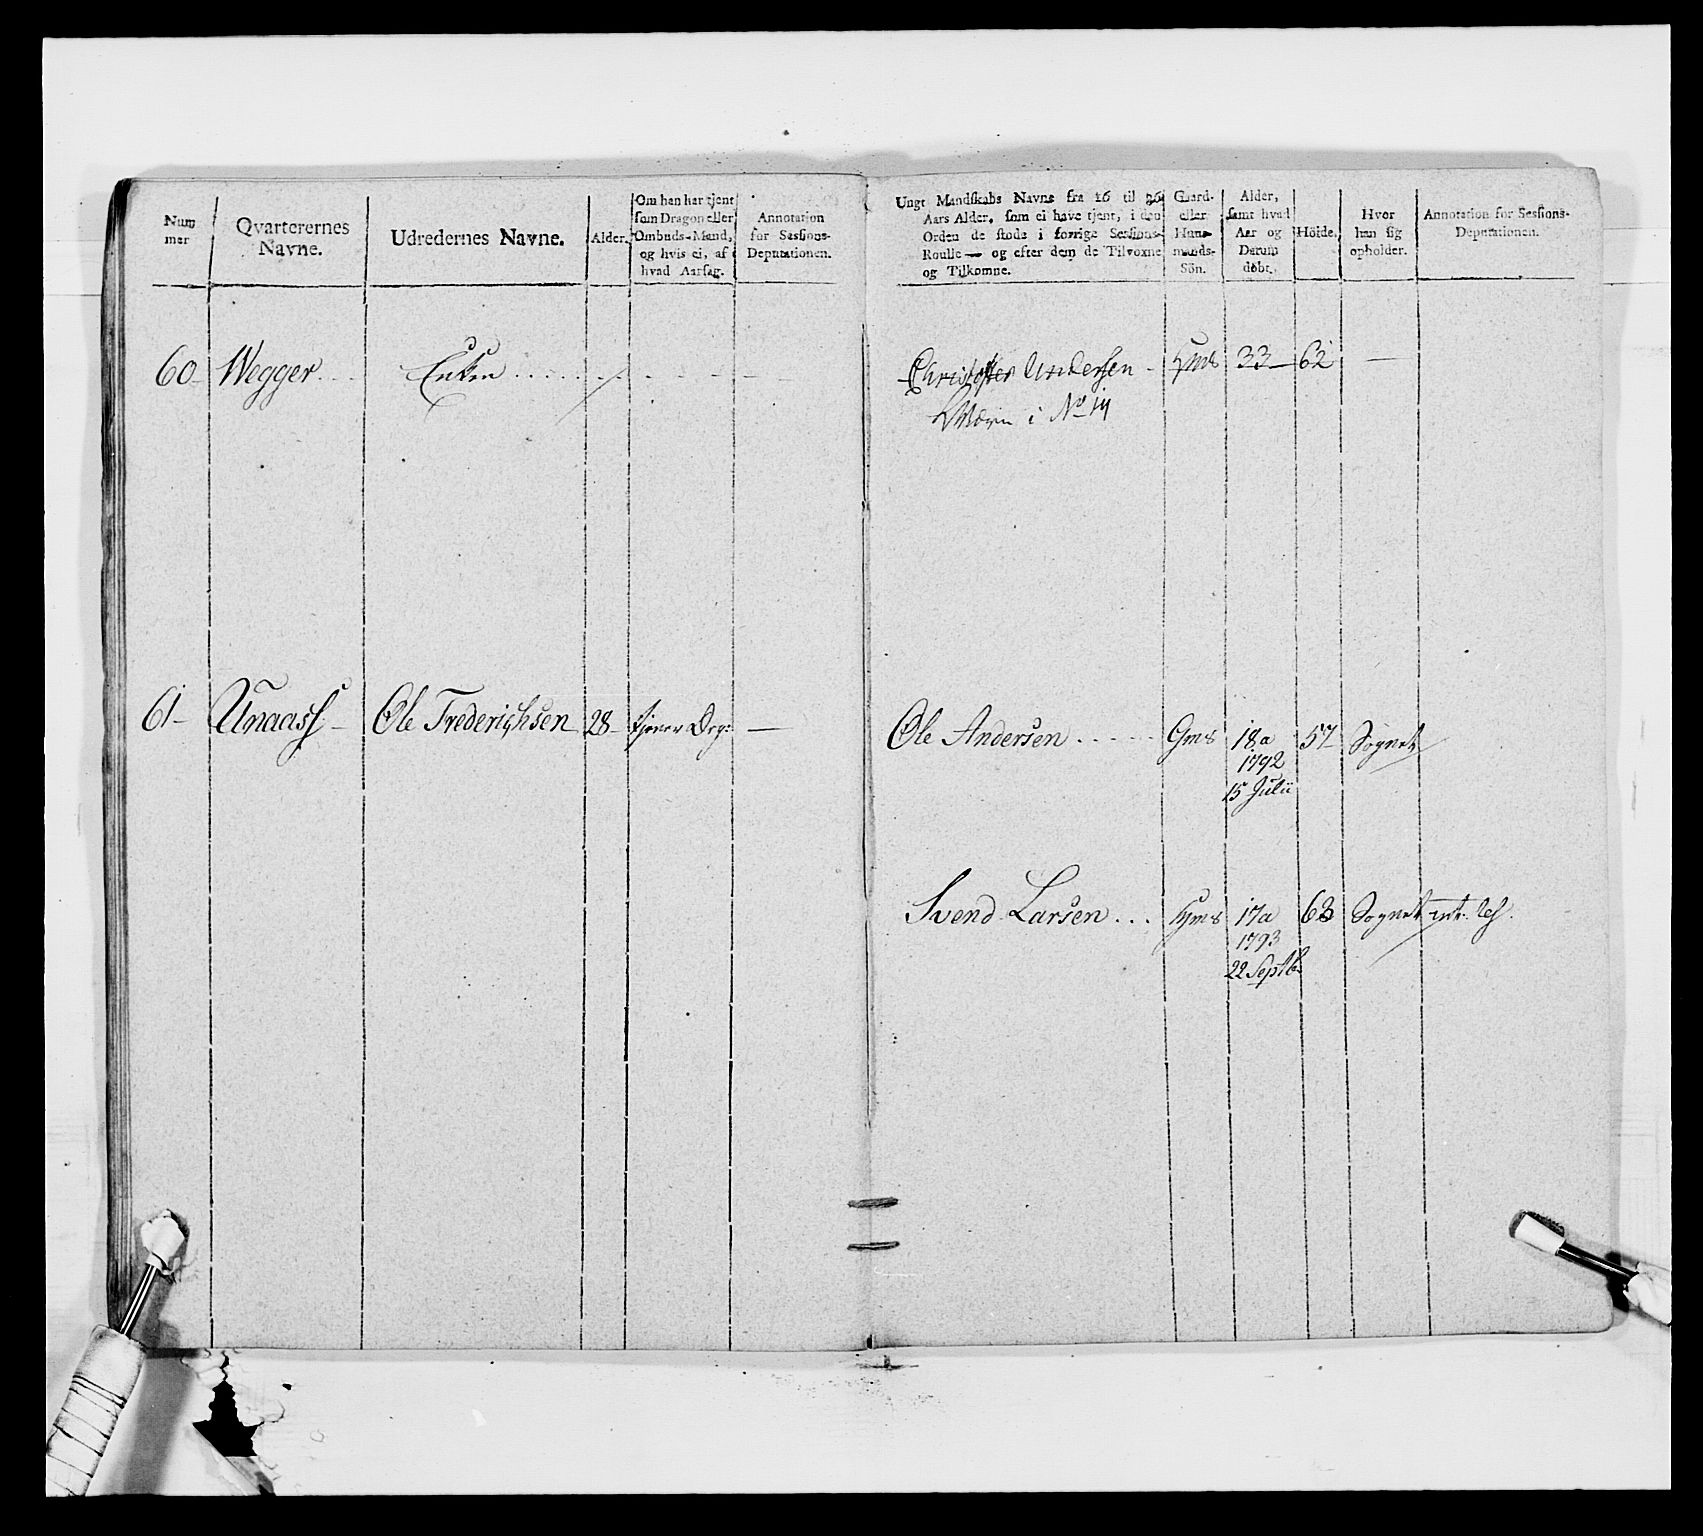 Num
mer
Qvarterernes
Navne.
Udredernes Navne.
Alder.
Om han har tjent
som Dragon eller
Ombuds-Mand,
og hvis ei, af
hvad Aarsag.
Annotation
for Sessions-
Deputationen.
Ungt Mandskabs Navne fra 16 til 26
Aars Alder, som ei have tjent, i den
Orden de stode i forrige Sessions-
Roulle — og efter dem de Tilvoxne
og Tilkomne.
Gaard-
eller
Huus-
mands-
Sön.
Alder,
samt hvad
Aar og
Datum
döbt.
Höide.
Hvor
han sig
opholder.
Annotation for Sessions-
Deputationen.
60 – Wegger . . . Enken . . . . . . . . . . —
Christopher Andersen – Hms 33 – 62 —
i No 19
61 – Unaass – Ole Frederichsen 28 – tjener Drg: —
Ole Andersen . . . . . Gms 18a 57 Sognet
1792
15 Julii
Svend Larsen . . . Hms 17a 63 Sognet
1793
22 Septb